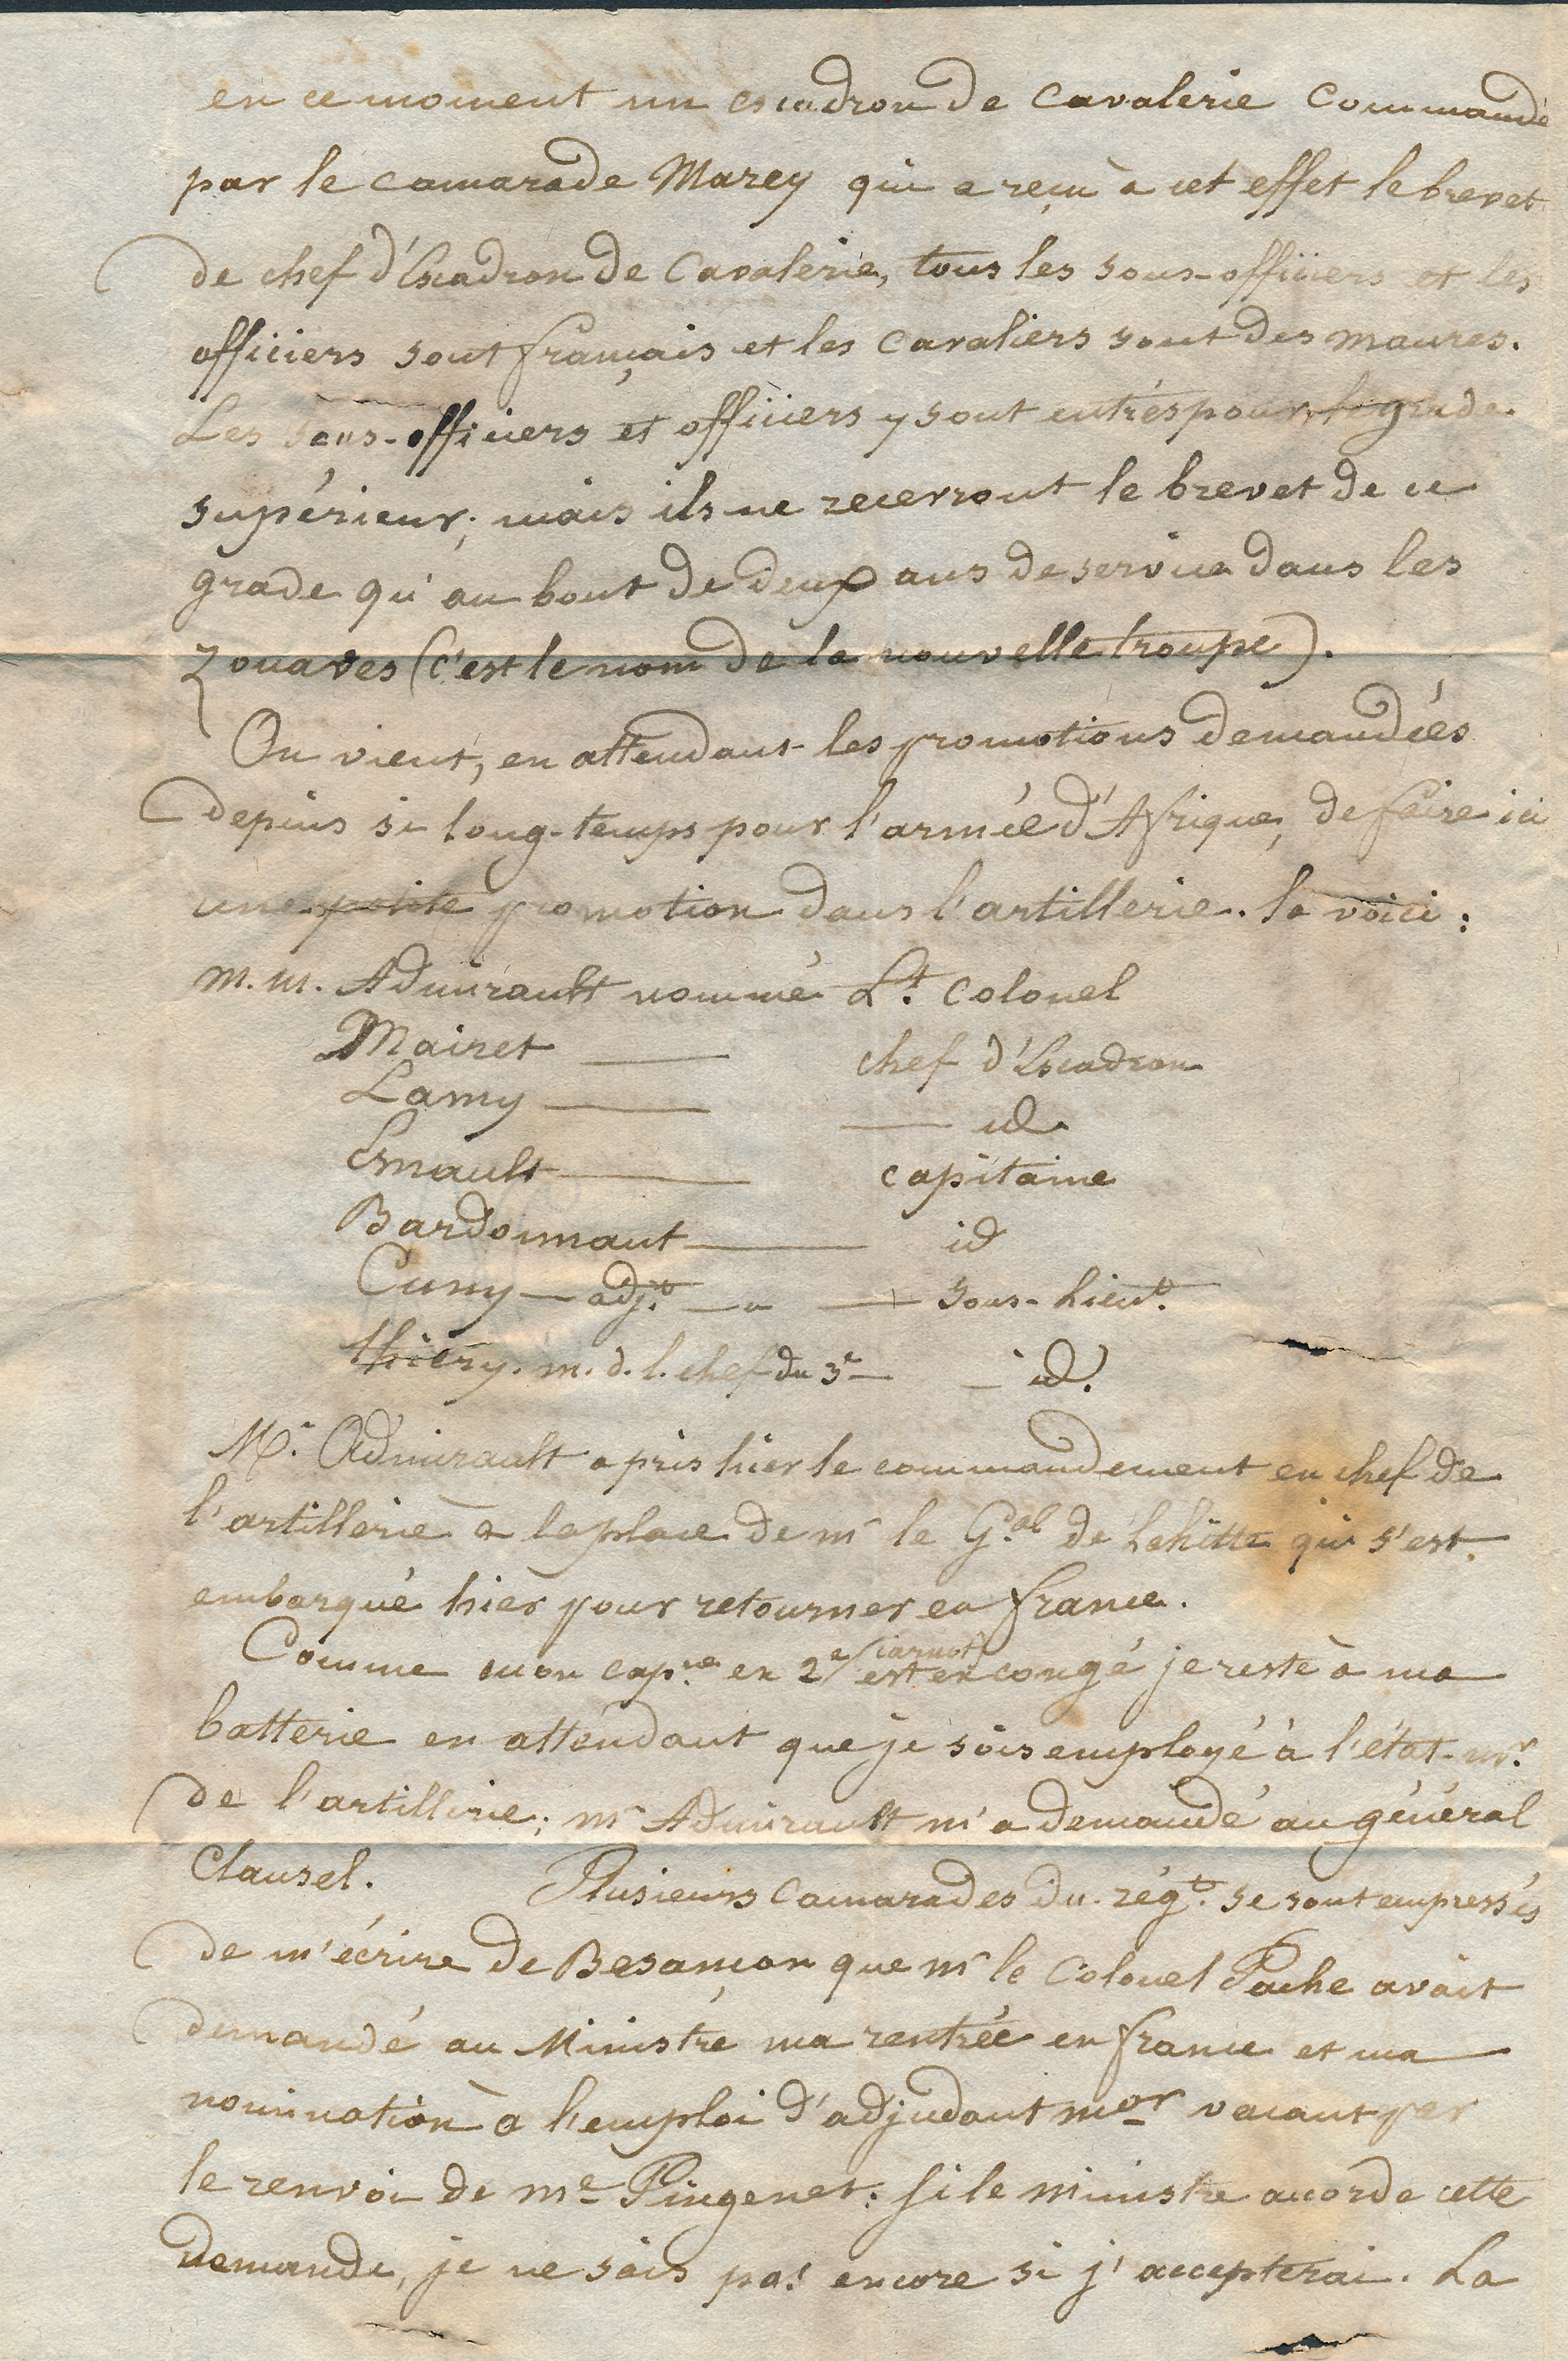 en ce moment un escadron de cavalerie commandé
par le camarade Marey qui a reçu à cet effet le brevet
de chef d'Escadron de Cavalerie, tous les sous-officiers et les
officiers sont français et les Cavaliers sont des maures.
Les sous-officiers et officiers y sont entrés pour le grade
supérieur; mais ils ne recevront le brevet de ce
grade qu'au bout de deux ans de service dans les
Zouaves (c'est le nom de la nouvelle troupe).
On vient, en attendant les promotions demandées
depuis si long-temps pour l'armée d'Afrique, de faire ici
une petite promotion dans l'artillerie. la voici:
M.M. Admirault nommé Lt. Colonel
Mairet — chef d'Escadron
Lamy — — id.
Esnault — capitaine
Bardonnaut — id
Cuny — adjt. — — sous-lieut.
thiery. m. d. l. chef du 3e — — id.
Mr. Admirault a pris hier le commandement en chef de
l'artillerie à la place de mr le Gal. de Lahitte qui s'est
embarqué hier pour retourner en france.
Comme mon capne. en 2e (carnot) est en congé je reste à ma
batterie en attendant que je sois employé à l'état-mr.
de l'artillerie; mr Admirault m'a demandé au général
Clausel. Plusieurs Camarades du régt. se sont empressés
de m'écrire de Besançon que mr le Colonel Pache avait
demandé au Ministre ma rentrée en france et ma
nomination à l'emploi d'adjudant mor vacant par
le renvoi de me Pingenet: si le ministre accorde cette
demande, je ne sais pas encore si j'accepterai. La